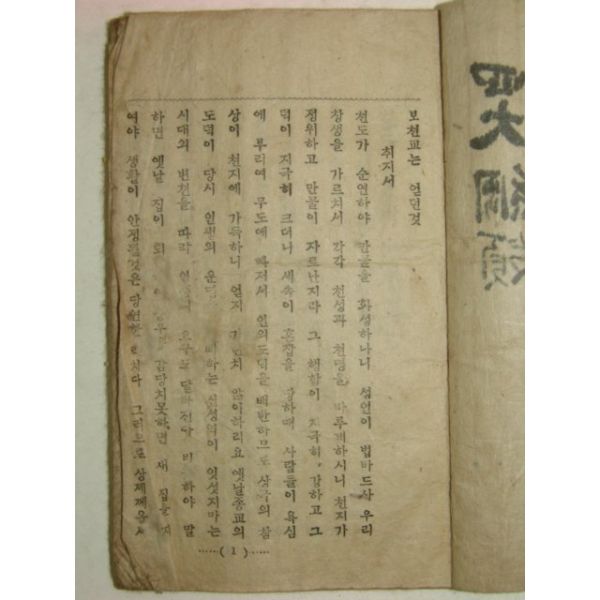 四大綱領
보천교는 얻던것
취지서
천도가 순연하야 만물을 화성하나니 성인이 법바드사 우리
창생을 가르처서 각각 천성과 천명을 바루게하시니 천지가
정위하고 만물이 자르난지라 그 해함이 지극히 강하고 그
덕이 지극히 크더니 세속이 혼잡을 당하매 사람들이 욕심
에 부리여 무도에 빠저서 인의도덕을 배반하므로 참
상이 천지에 가득하니 엇지 않이하리요 옛날종교의
도덕이 당시 인생의 하는 신성력이 잇섯지마는
시대의 변천을 따라 하야 말
하면 옛날 집이 감당치못하면 새 집을 지
여야 생활이 안정될것은 당연한 그리므로
……( 1 )……